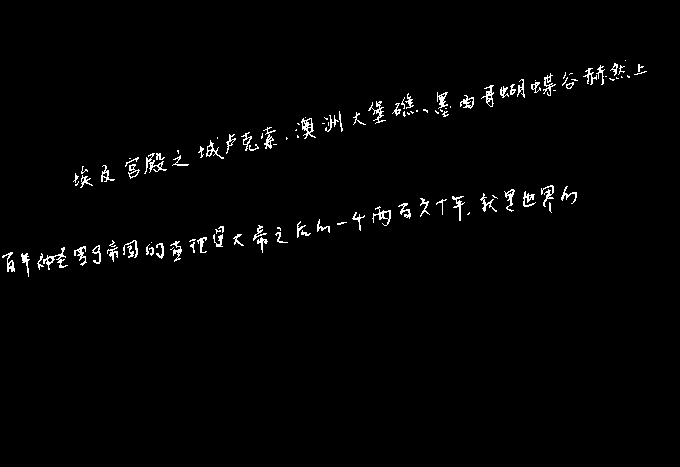 埃及宫殿之城卢克索、澳洲大堡礁、墨西哥蝴蝶谷赫然上
百年神圣罗马帝国的查理曼大帝之后的一个两百六十年,就是世界的